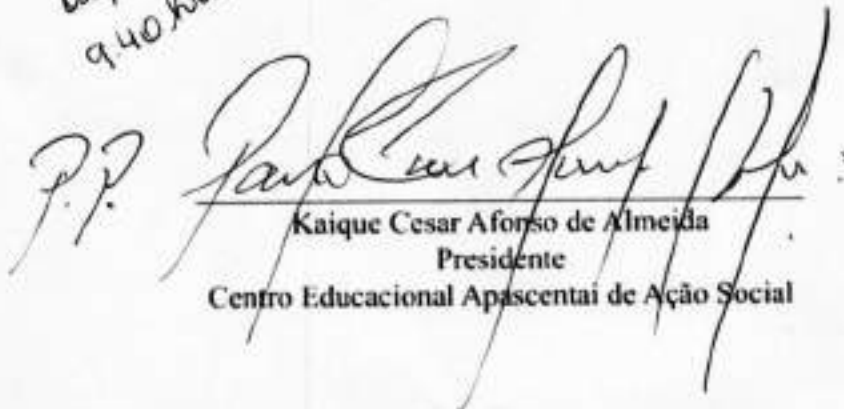 9:40 h
P.P.
Kaique Cesar Afonso de Almeida
Presidente
Centro Educacional Apascentai de Ação Social